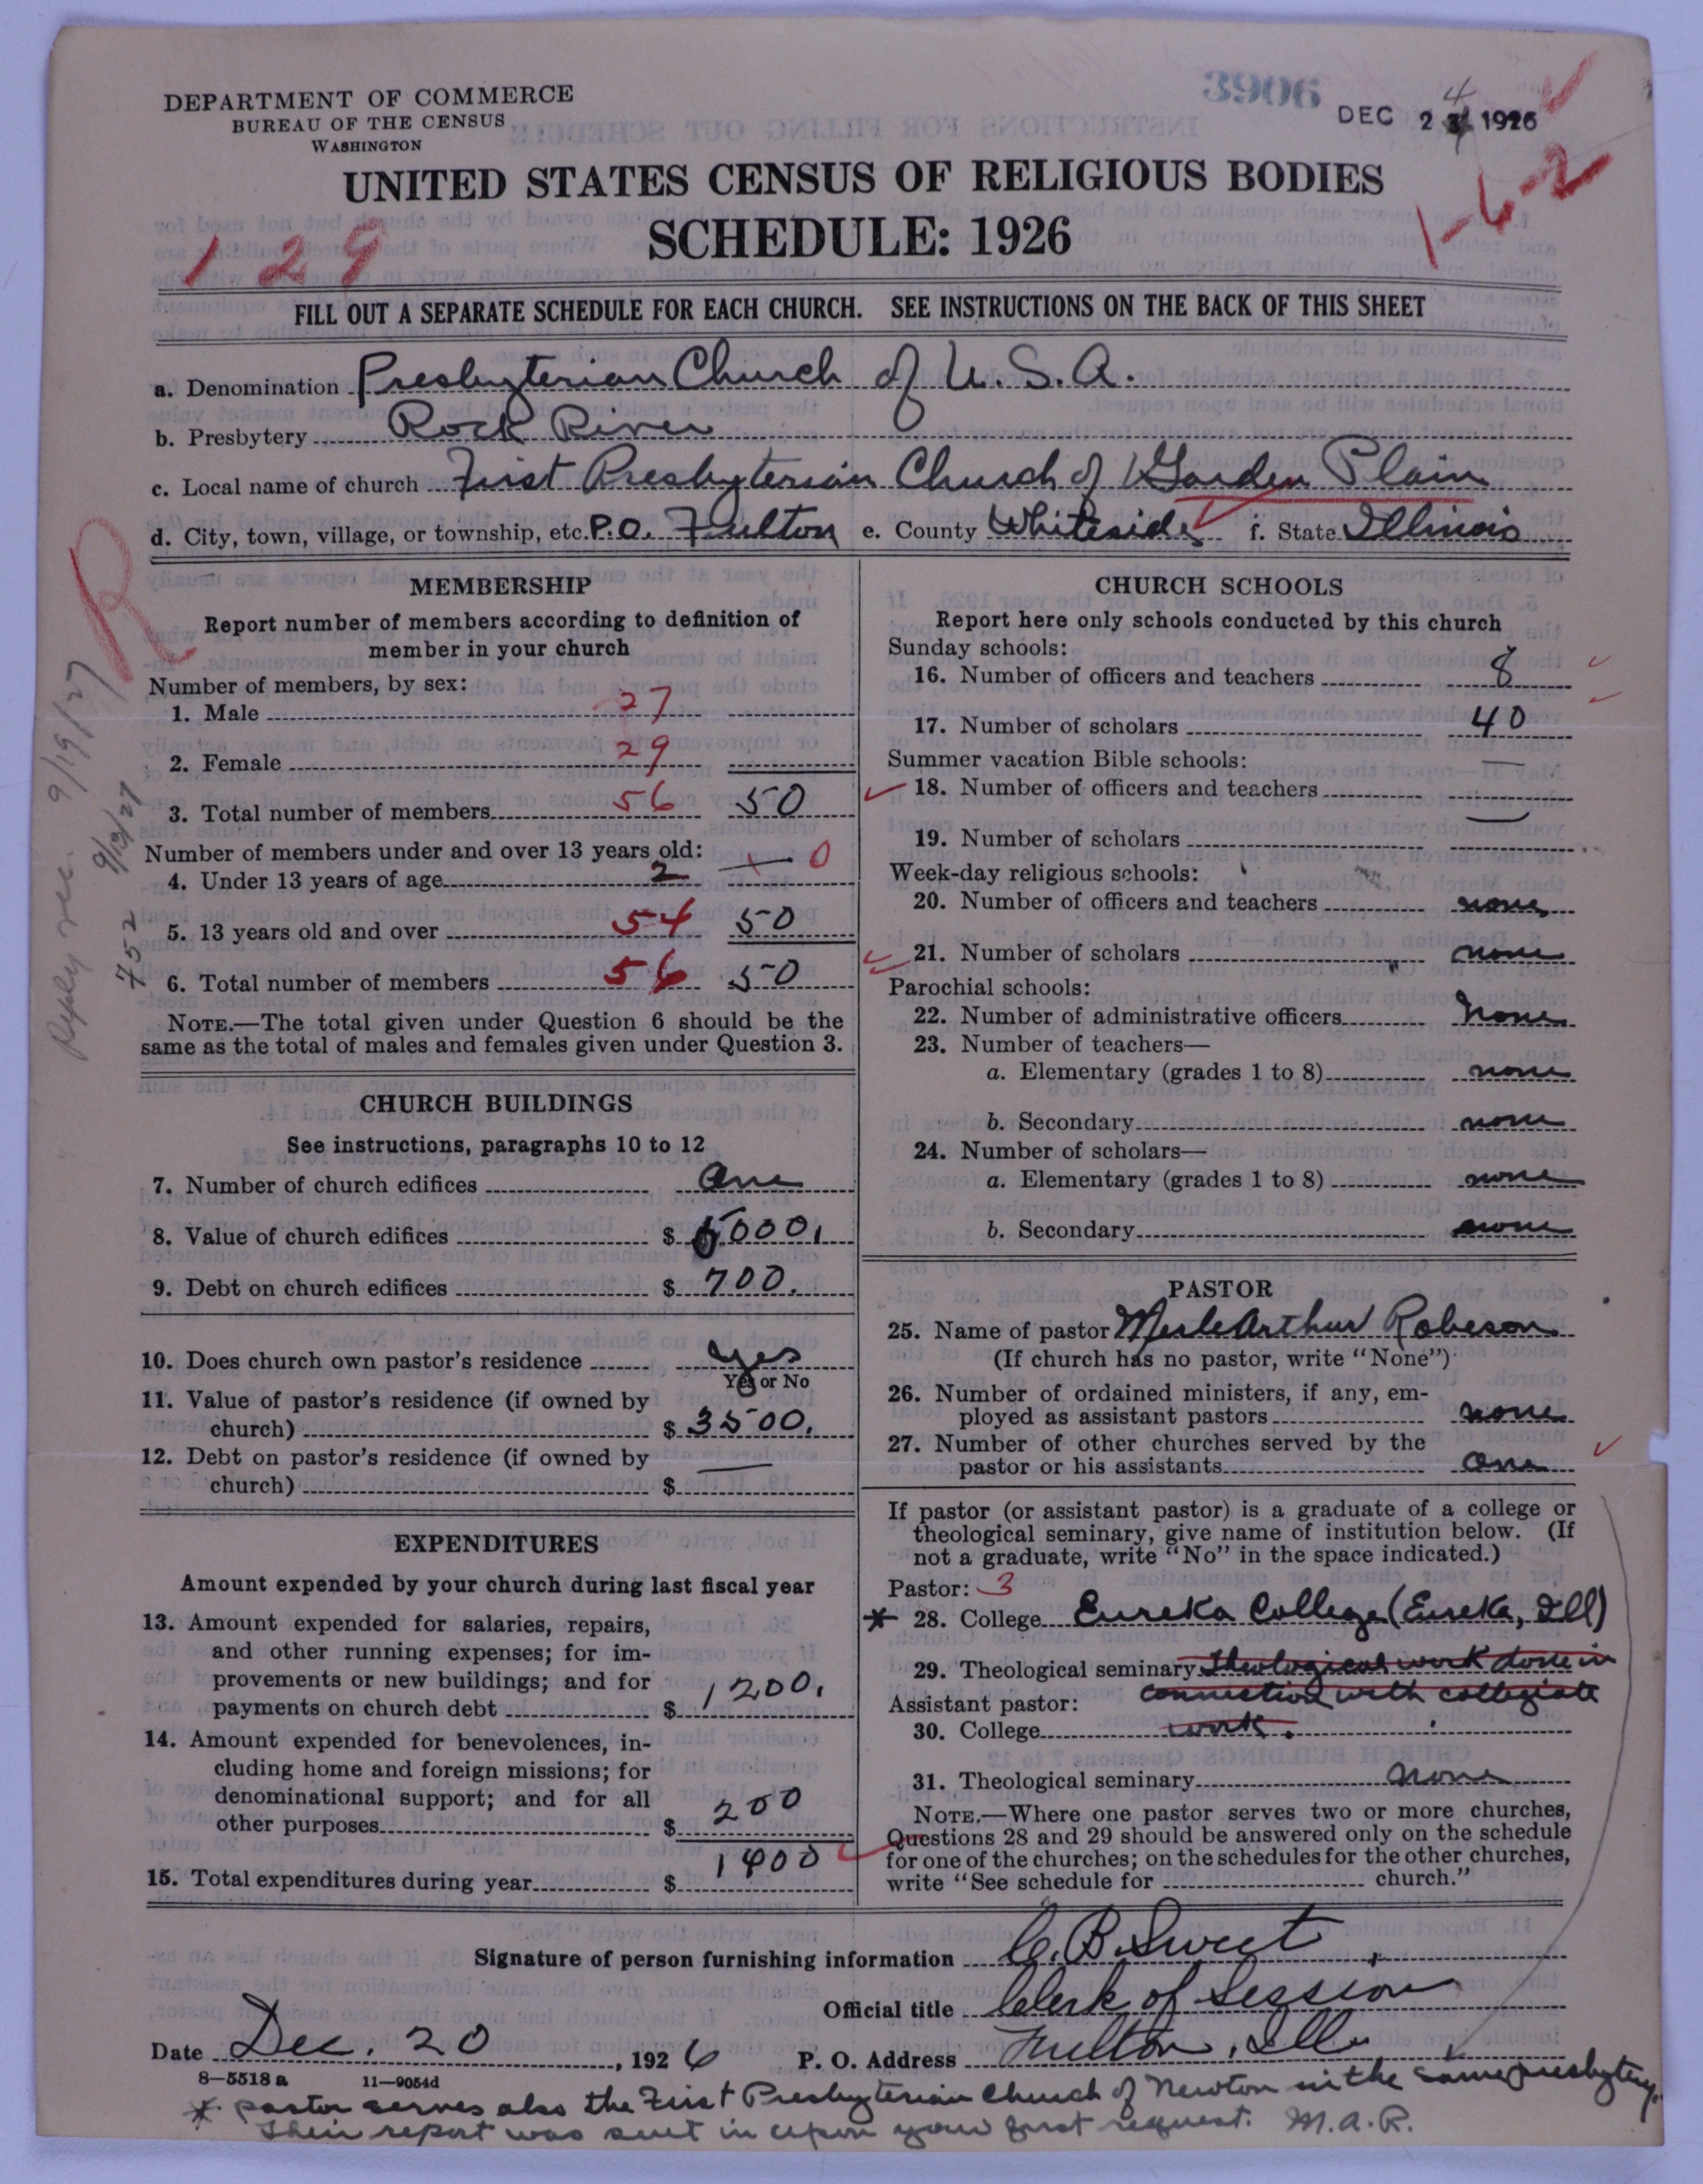 3906
DEC 24 1926
DEPARTMENT OF COMMERCE
BUREAU OF THE CENSUS
WASHINGTON
UNITED STATES CENSUS OF RELIGIOUS BODIES
SCHEDULE: 1926
129
1-62
FILL OUT A SEPARATE SCHEDULE FOR EACH CHURCH. SEE INSTRUCTIONS ON THE BACK OF THIS SHEET
a. Denomination Presbyterian Church of U.S.A.
b. Presbytery Rock River
c. Local name of church First Presbyterian Church of Garden Plain
d. City, town, village, or township, etc. P.O. Fulton e. County Whiteside f. State Illinois
R
Reply rec. 9/19/27
752 9/13/27
MEMBERSHIP
Report number of members according to definition of
member in your church
Number of members, by sex:
1. Male 27
2. Female 29
3. Total number of members 56 50
Number of members under and over 13 years old:
4. Under 13 years of age 2 — 0
5. 13 years old and over 54 50
6. Total number of members 56 50
NOTE.—The total given under Question 6 should be the
same as the total of males and females given under Question 3.
CHURCH BUILDINGS
See instructions, paragraphs 10 to 12
7. Number of church edifices One
8. Value of church edifices $ 5000.
9. Debt on church edifices $ 700.
10. Does church own pastor's residence yes
Yes or No
11. Value of pastor's residence (if owned by
church) $ 3500.
12. Debt on pastor's residence (if owned by
church) $ —
EXPENDITURES
Amount expended by your church during last fiscal year
13. Amount expended for salaries, repairs,
and other running expenses; for im-
provements or new buildings; and for
payments on church debt $ 1200.
14. Amount expended for benevolences, in-
cluding home and foreign missions; for
denominational support; and for all
other purposes $ 200
15. Total expenditures during year $ 1400
CHURCH SCHOOLS
Report here only schools conducted by this church
Sunday schools:
16. Number of officers and teachers 8
17. Number of scholars 40
Summer vacation Bible schools:
18. Number of officers and teachers —
19. Number of scholars —
Week-day religious schools:
20. Number of officers and teachers none
21. Number of scholars none
Parochial schools:
22. Number of administrative officers none
23. Number of teachers—
a. Elementary (grades 1 to 8) none
b. Secondary none
24. Number of scholars—
a. Elementary (grades 1 to 8) none
b. Secondary none
PASTOR
25. Name of pastor Merle Arthur Robeson
(If church has no pastor, write "None")
26. Number of ordained ministers, if any, em-
ployed as assistant pastors none
27. Number of other churches served by the
pastor or his assistants One
If pastor (or assistant pastor) is a graduate of a college or
theological seminary, give name of institution below. (If
not a graduate, write "No" in the space indicated.)
Pastor: 3
* 28. College Eureka College (Eureka, Ill)
29. Theological seminary Theological work done in
Assistant pastor: connection with collegiate
30. College work.
31. Theological seminary none
NOTE.—Where one pastor serves two or more churches,
Questions 28 and 29 should be answered only on the schedule
for one of the churches; on the schedules for the other churches,
write "See schedule for church."
Signature of person furnishing information C. B. Sweet
Official title Clerk of Session
Date Dec. 20, 1926 P. O. Address Fulton, Ill.
8-5518 a 11-9054d
* pastor serves also the First Presbyterian Church of Newton in the same presbytery.
Their report was sent in upon your first request. M.A.R.